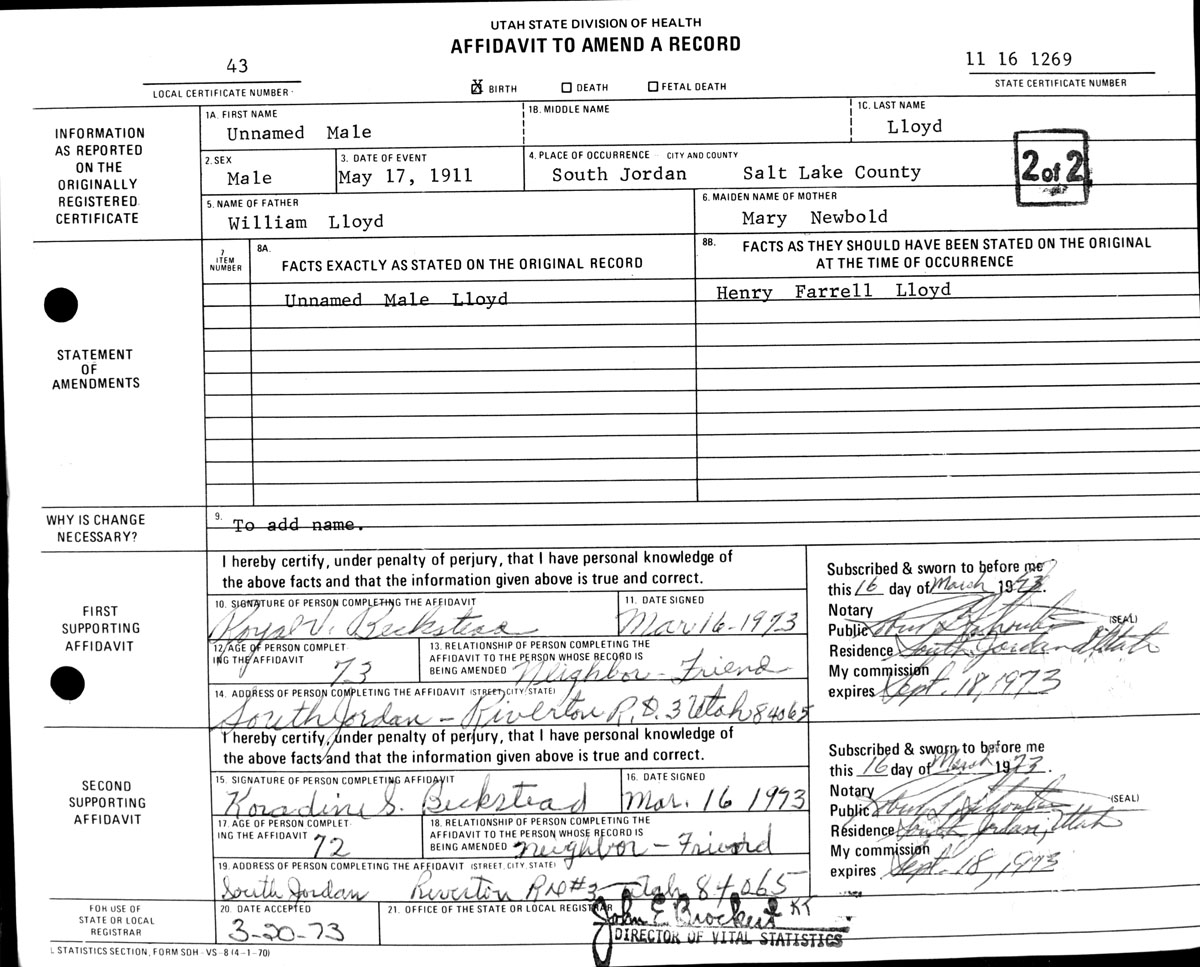 UTAH STATE DIVISION OF HEALTH
AFFIDAVIT TO AMEND A RECORD
43
LOCAL CERTIFICATE NUMBER
X BIRTH DEATH FETAL DEATH
11 16 1269
STATE CERTIFICATE NUMBER
INFORMATION
AS REPORTED
ON THE
ORIGINALLY
REGISTERED
CERTIFICATE
1A. FIRST NAME
Unnamed Male
1B. MIDDLE NAME
1C. LAST NAME
Lloyd
2. SEX
Male
3. DATE OF EVENT
May 17, 1911
4. PLACE OF OCCURRENCE - CITY AND COUNTY
South Jordan Salt Lake County
2 of 2
5. NAME OF FATHER
William Lloyd
6. MAIDEN NAME OF MOTHER
Mary Newbold
STATEMENT
OF
AMENDMENTS
7
ITEM
NUMBER
8A.
FACTS EXACTLY AS STATED ON THE ORIGINAL RECORD
8B. FACTS AS THEY SHOULD HAVE BEEN STATED ON THE ORIGINAL
AT THE TIME OF OCCURRENCE
Unnamed Male Lloyd
Henry Farrell Lloyd
WHY IS CHANGE
NECESSARY?
9. To add name.
FIRST
SUPPORTING
AFFIDAVIT
I hereby certify, under penalty of perjury, that I have personal knowledge of
the above facts and that the information given above is true and correct.
10. SIGNATURE OF PERSON COMPLETING THE AFFIDAVIT
Royal V. Beckstead
11. DATE SIGNED
Mar. 16-1973
12. AGE OF PERSON COMPLET
ING THE AFFIDAVIT
73
13. RELATIONSHIP OF PERSON COMPLETING THE
AFFIDAVIT TO THE PERSON WHOSE RECORD IS
BEING AMENDED Neighbor - Friend
14. ADDRESS OF PERSON COMPLETING THE AFFIDAVIT (STREET, CITY, STATE)
South Jordan - Riverton R.D. 3 Utah 84065
Subscribed & sworn to before me
this 16 day of March 1973.
Notary
Public
(SEAL)
Residence South Jordan Utah
My commission
expires Sept. 18, 1973
SECOND
SUPPORTING
AFFIDAVIT
I hereby certify, under penalty of perjury, that I have personal knowledge of
the above facts and that the information given above is true and correct.
15. SIGNATURE OF PERSON COMPLETING AFFIDAVIT
Koradine S. Beckstead
16. DATE SIGNED
Mar. 16 1973
17. AGE OF PERSON COMPLET
ING THE AFFIDAVIT
72
18. RELATIONSHIP OF PERSON COMPLETING THE
AFFIDAVIT TO THE PERSON WHOSE RECORD IS
BEING AMENDED Neighbor - Friend
19. ADDRESS OF PERSON COMPLETING THE AFFIDAVIT (STREET, CITY, STATE)
South Jordan Riverton #3 Utah 84065
Subscribed & sworn to before me
this 16 day of March 1973.
Notary
Public
(SEAL)
Residence South Jordan, Utah
My commission
expires Sept. 18, 1973
FOR USE OF
STATE OR LOCAL
REGISTRAR
20. DATE ACCEPTED
3-20-73
21. OFFICE OF THE STATE OR LOCAL REGISTRAR
John E. Brockert KT
DIRECTOR OF VITAL STATISTICS
L STATISTICS SECTION, FORM SDH - VS - 8 (4-1-70)